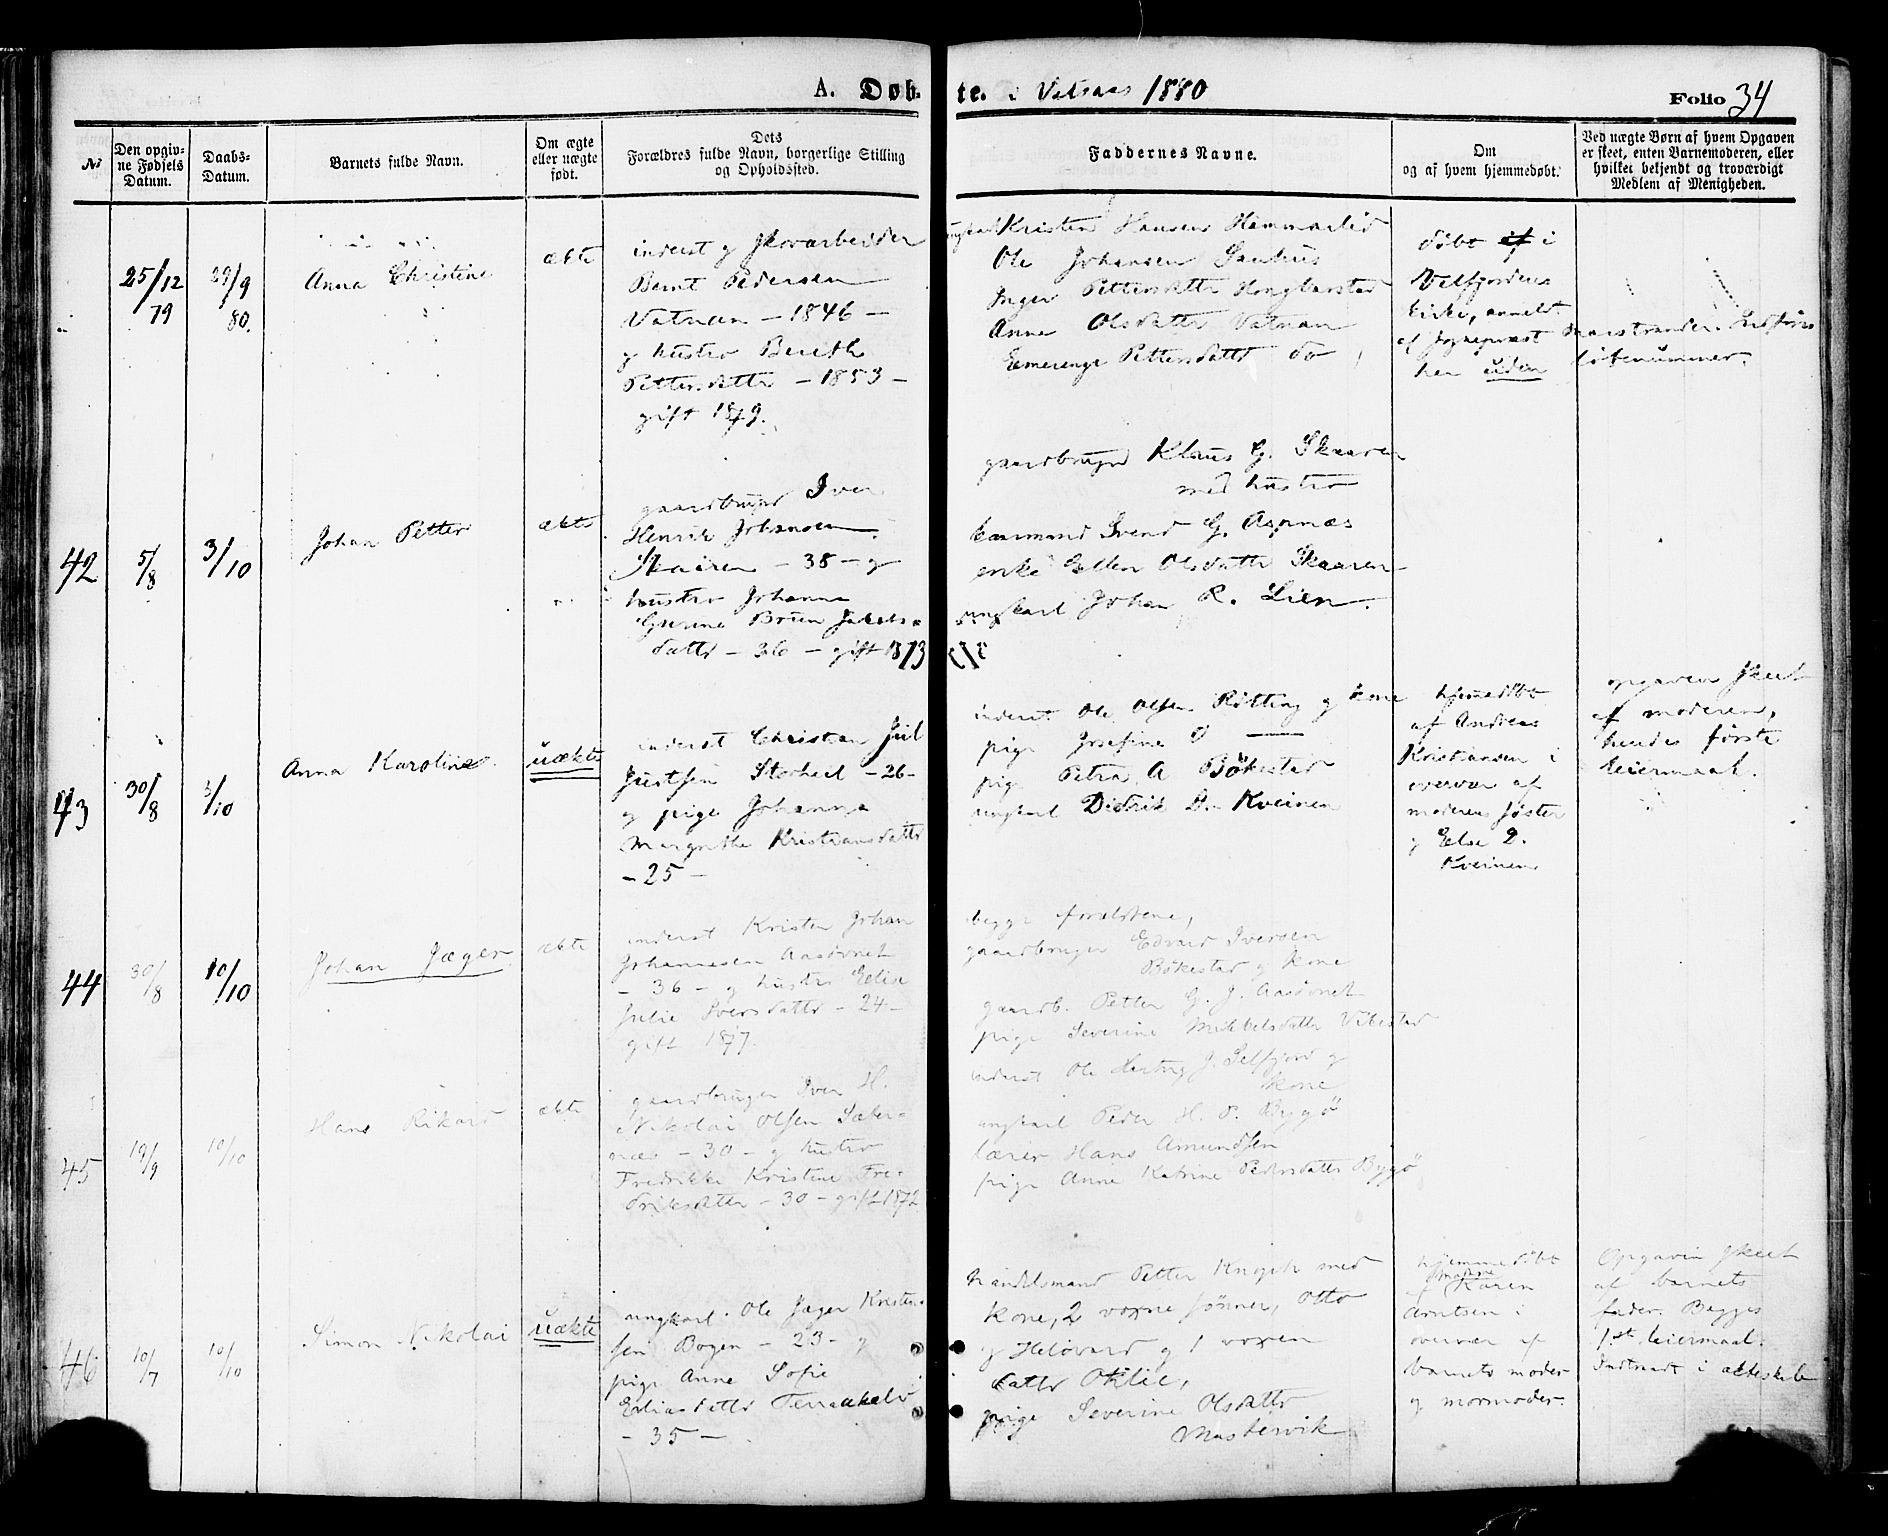 A. Døb-
te. i Vatsaas 1880
Folio 34
No
Den opgiv-
ne Fødsels
Datum.
Daabs-
Datum.
Barnets fulde Navn.
Om ægte
eller uægte
født.
Dets
Forældres fulde Navn, borgerlige Stilling
og Opholdssted.
Faddernes Navne.
Om
og af hvem hjemmedøbt.
Ved uægte Børn af hvem Opgaven
er skeet, enten Barnemoderen, eller
hvilket bekjendt og troværdigt
Medlem af Menigheden.
25/12
79
29/9
80.
Anna Christine
ækte
inderst og skovarbeider
Bernt Pedersen
Vatnan – 1846 –
og hustro Bereth
Pettersdatter – 1853 –
gift 1879.
ungkarl Kristen Hansen Hammarlid
Ole Johansen Sauhus
Inger Pettersdattr
Anne Olsdattr Vatnan
Emerenze Pettersdattr do
døbt i
Velfjordens
kirke, anmeldt
af sognepræst Marstrander. Indføres
her uden løbenummer.
42
5/8
3/10
Johan Petter
ækte
gaardbruger Iver
Henrik Johansen
Skaaren – 38 – og
hustro Johanna
Gurine Bruun Jakobs-
dattr – 36 – gift 1873
gaardbruger Klaus G. Skaaren
med hustro
kaarmand Svend G. Aspnæs
enke Ellen Olsdattr Skaaren
ungkarl Johan R. Lien.
43
30/8
3/10
Anna Karoline
uækte
inderst Christian Juul
Justsen Storheil – 26 –
og pige Johanna
Margrethe Kristiansdattr
– 25 –
inderst Ole Olsen Røtting og kone
pige Josefine O —
pige Petra A Bøkestad
ungkarl Didrik D. Kveinen
hjemmedøbt
af Andreas
Kristiansen i
overvær af
moderens søster
og Else D.
Kveinen
opgaven skeet
af moderen,
hendes første
leiermaal.
44
30/8
10/10
Johan Jæger
ækte
inderst Kristen Johan
Johannesen Aasdvnet
– 36 – og hustro Elise
Julie Iversdattr – 24 –
gift 1877.
begge forældrene,
gaardbruger Edvard Iversen
Bøkestad og kone
gaardb. Petter G. J. Aasdvnet
pige Severine Mikkelsdattr Vikestad
45
19/9
10/10
Hans Rikard
ækte
gaardbruger Iver H.
Nikolai Olsen Sæter-
næs – 30 – og hustro
Fredrikke Kristine Fre-
driksdatter – 30 – gift 1872
inderst Ole Hartvig J. Selfjord og
kone
ungkarl Peder H. P. Bygø
lærer Hans Amundsen
pige Anne Katrine Pedersdattr Bygø
46
10/7
10/10
Simon Nikolai
uækte
ungkarl Ole Jæger Kristen-
sen Bogen – 23 – og
pige Anne Sofie
Eliasdattr Terraakelv
– 35 –
handelsmand Petter Knoph med
kone, 2 voxne sønner, Otto
og Heløvard og 1 voxen
dattr Otilie,
pige Severine Olsdattr
Mastervik
hjemmedøbt
af madme Karen
Arntsen i
overvær af
barnets moder
og mormoder.
Opgaven skeet
af barnets
fader. Begges
1ste leiermaal.
Indtraadt i ækteskab